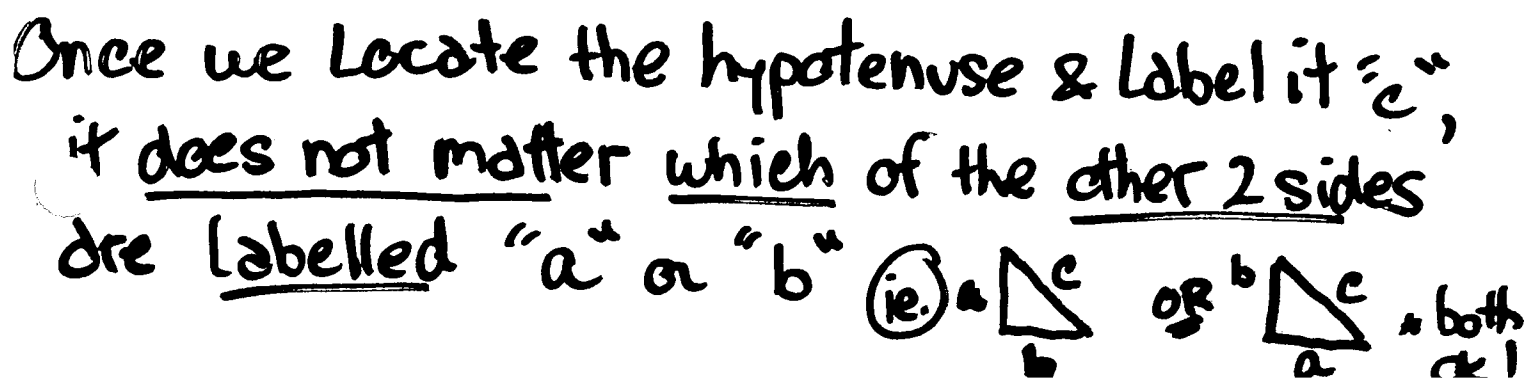 Once we Locate the hypotenuse & Label it "c",
it does not matter which of the other 2 sides
are labelled "a" or "b" ie. a c b OR b c a * both
ok!